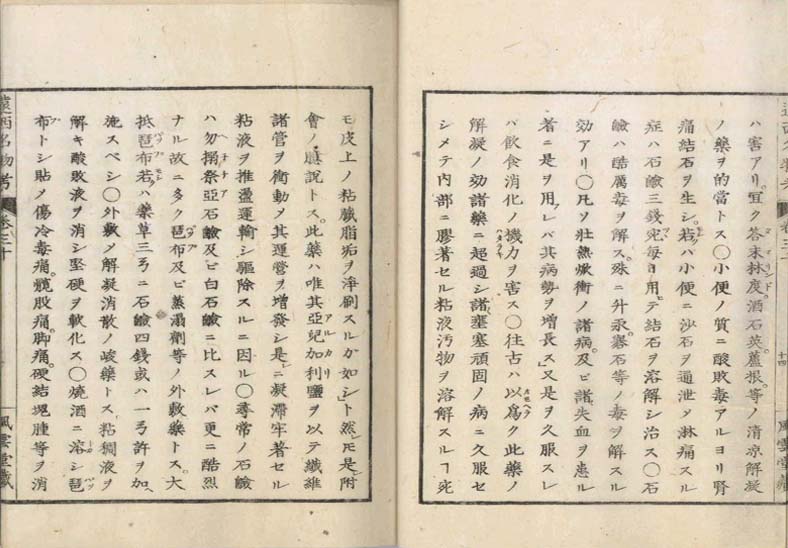 ハ害アリ。宜ク荅末林度。酒石英蘆根。等ノ清凉解凝
ノ藥ヲ的當トス〇小便ノ質ニ酸敗毒アルヨリ腎
痛結石ヲ生シ。若クハ小便ニ沙石ヲ通泄メ淋痛スル
症ハ石鹼三錢宛毎日用テ結石ヲ溶解シ治ス〇石
鹼ハ酷厲毒ヲ解ス。殊ニ升汞。礜石等ノ毒ヲ解スル
効アリ〇凡ソ壮熱焮衝ノ諸病。及ビ諸失血ヲ患ル
者ニ是ヲ用レバ其病勢ヲ增長ス又是ヲ久服スレ
バ飲食消化ノ機力ヲ害ス〇往古ハ以爲ク此藥ノ
解凝ノ効諸藥ニ超過シ諸壅塞頑固ノ病ニ久服セ
シメテ内部ニ膠著セル粘液汚物ヲ溶解スルヿ宛
風雲堂藏
モ皮上ノ粘臓脂垢ヲ淨刷スルカ如シト然レ𪜈是附
會ノ臆說トス。此藥ハ唯其亞兒加利鹽ヲ以テ纖維
諸管ヲ衝動メ其運營ヲ增發シ是ニ凝滯牢著セル
粘液ヲ推盪運輸シ驅除スルニ因ル〇尋常ノ石鹼
ハ勿搦祭亞石鹼及ビ白石鹼ニ比スレバ更ニ酷烈
ナル故ニ多ク琶布及ビ蒸溻劑等ノ外敷藥トス。大
抵琶布若クハ藥草三弓ニ石鹼四錢或ハ一弓許ヲ加
施スベシ〇外敷メ解凝消散ノ峻藥トス。粘稠液ヲ
解キ酸敗液ヲ消シ堅硬ヲ軟化ス〇燒酒ニ溶シ琶
布トシ貼メ傷冷毒痛。髖股痛。脚痛。硬結塊腫等ヲ消
遠西名物考
卷三十
風雲堂藏